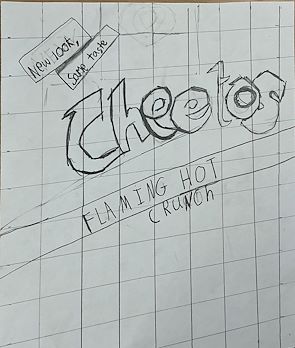 New look,
Same taste
Cheetos
FLAMING HOT
CRUNCh